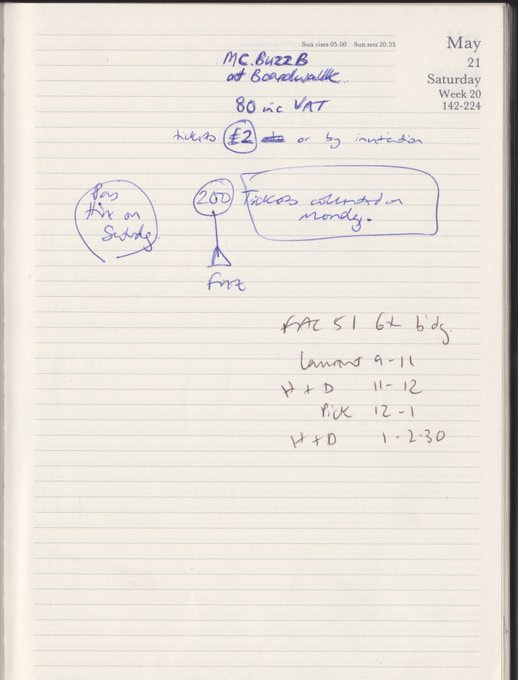 Sun rises 05.00 Sun sets 20:55
May
21
Saturday
Week 20
142-224
MC. BUZZ B
at Boardwalk.
80 inc VAT
tickets £2 or by invitation
200 Tickets collected on
Monday.
FAC 51 6th b'day.
Laurent 9-11
H + D 11-12
Pick 12-1
H + D 1-2-30